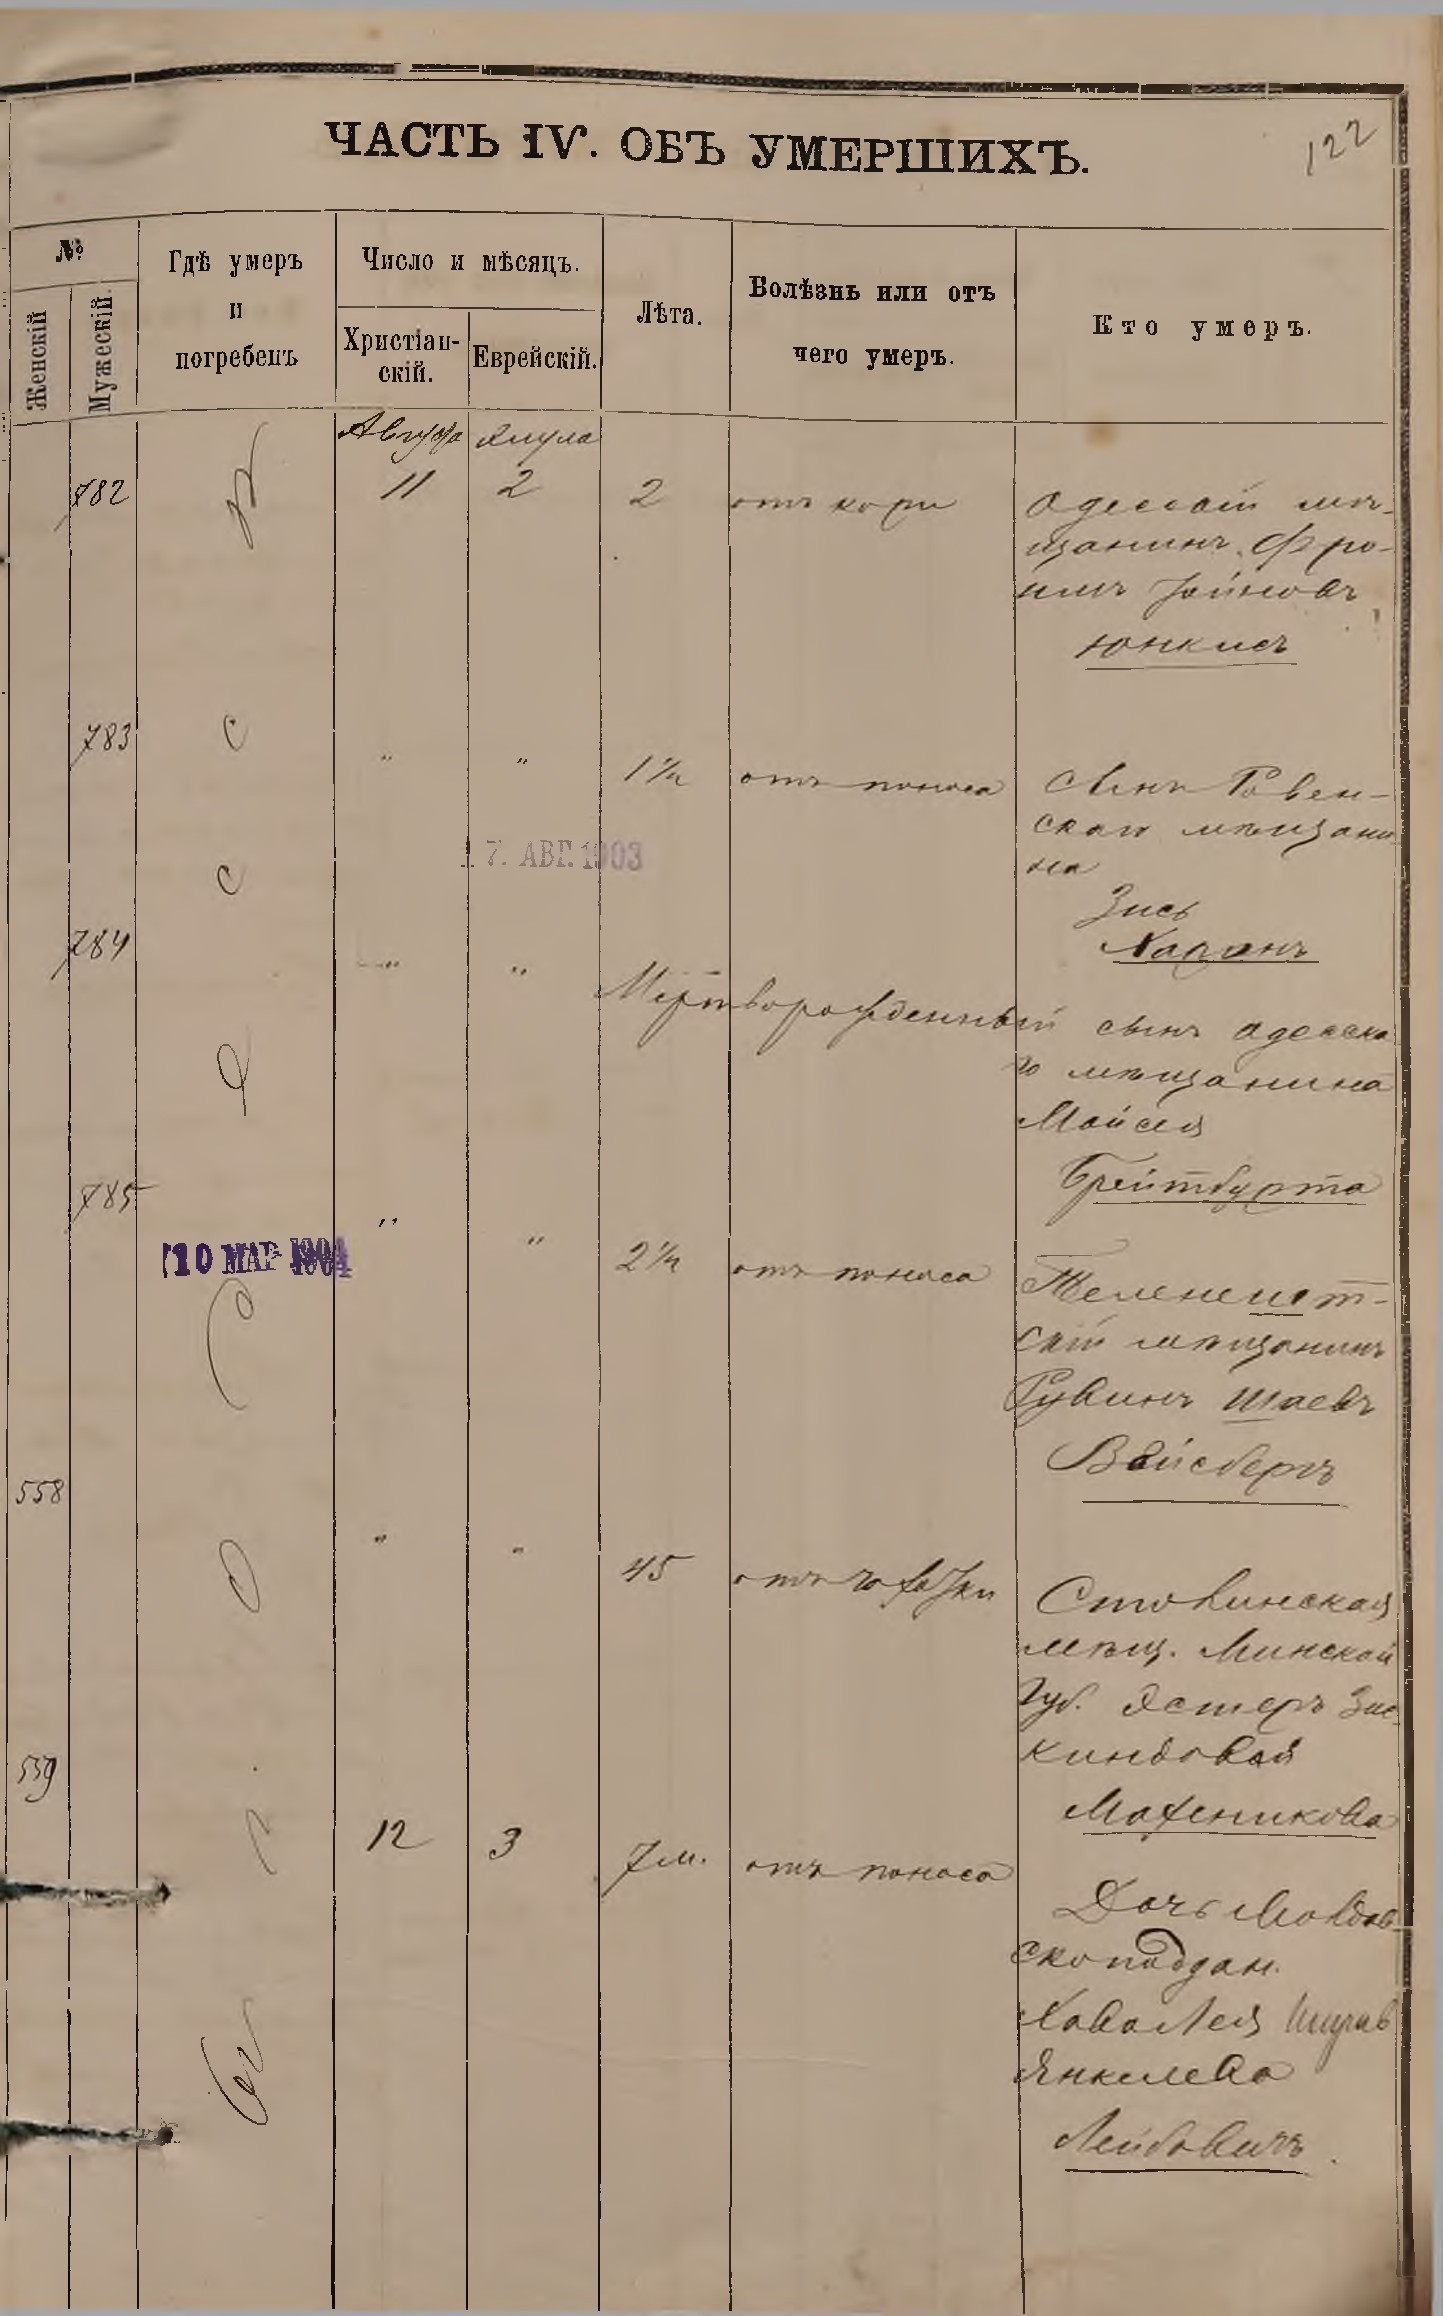 ЧАСТЬ IV. ОБЪ УМЕРШИХЪ.
122
№
Женскій
Мужескій.
Гдѣ умеръ
и
погребенъ
Число и мѣсяцъ.
Христіан-
скій.
Еврейскій.
Лѣта.
Болѣзнь или отъ
чего умеръ.
Кто умеръ.
Августа Элула
782 11 2 2 отъ кори Одесскій мѣ-
щанинъ Фро-
имъ Іойновъ
Юнкисъ
783 " " 1½ отъ поноса Сынъ Ровен-
скаго мѣщани
на
Зись
Хапанъ
17. АВГ. 1903
784 " " Мертворожденный сынъ одесска
го мѣщанина
Мойсея
Брейтбурта
785 " " 2½ отъ поноса Теленешт-
скій мѣщанинъ
Рувинъ Шаевъ
Вайсбергъ
10 МАР 1904
558 " " 45 отъ чахотки Столинская
мѣщ. Минской
губ. Эстеръ Зис
киндовой
559 12 3 7 м. отъ поноса Дочь Молдав
скоподдан.
Янкелева
Лейбовичъ.
въ г. Одессѣ